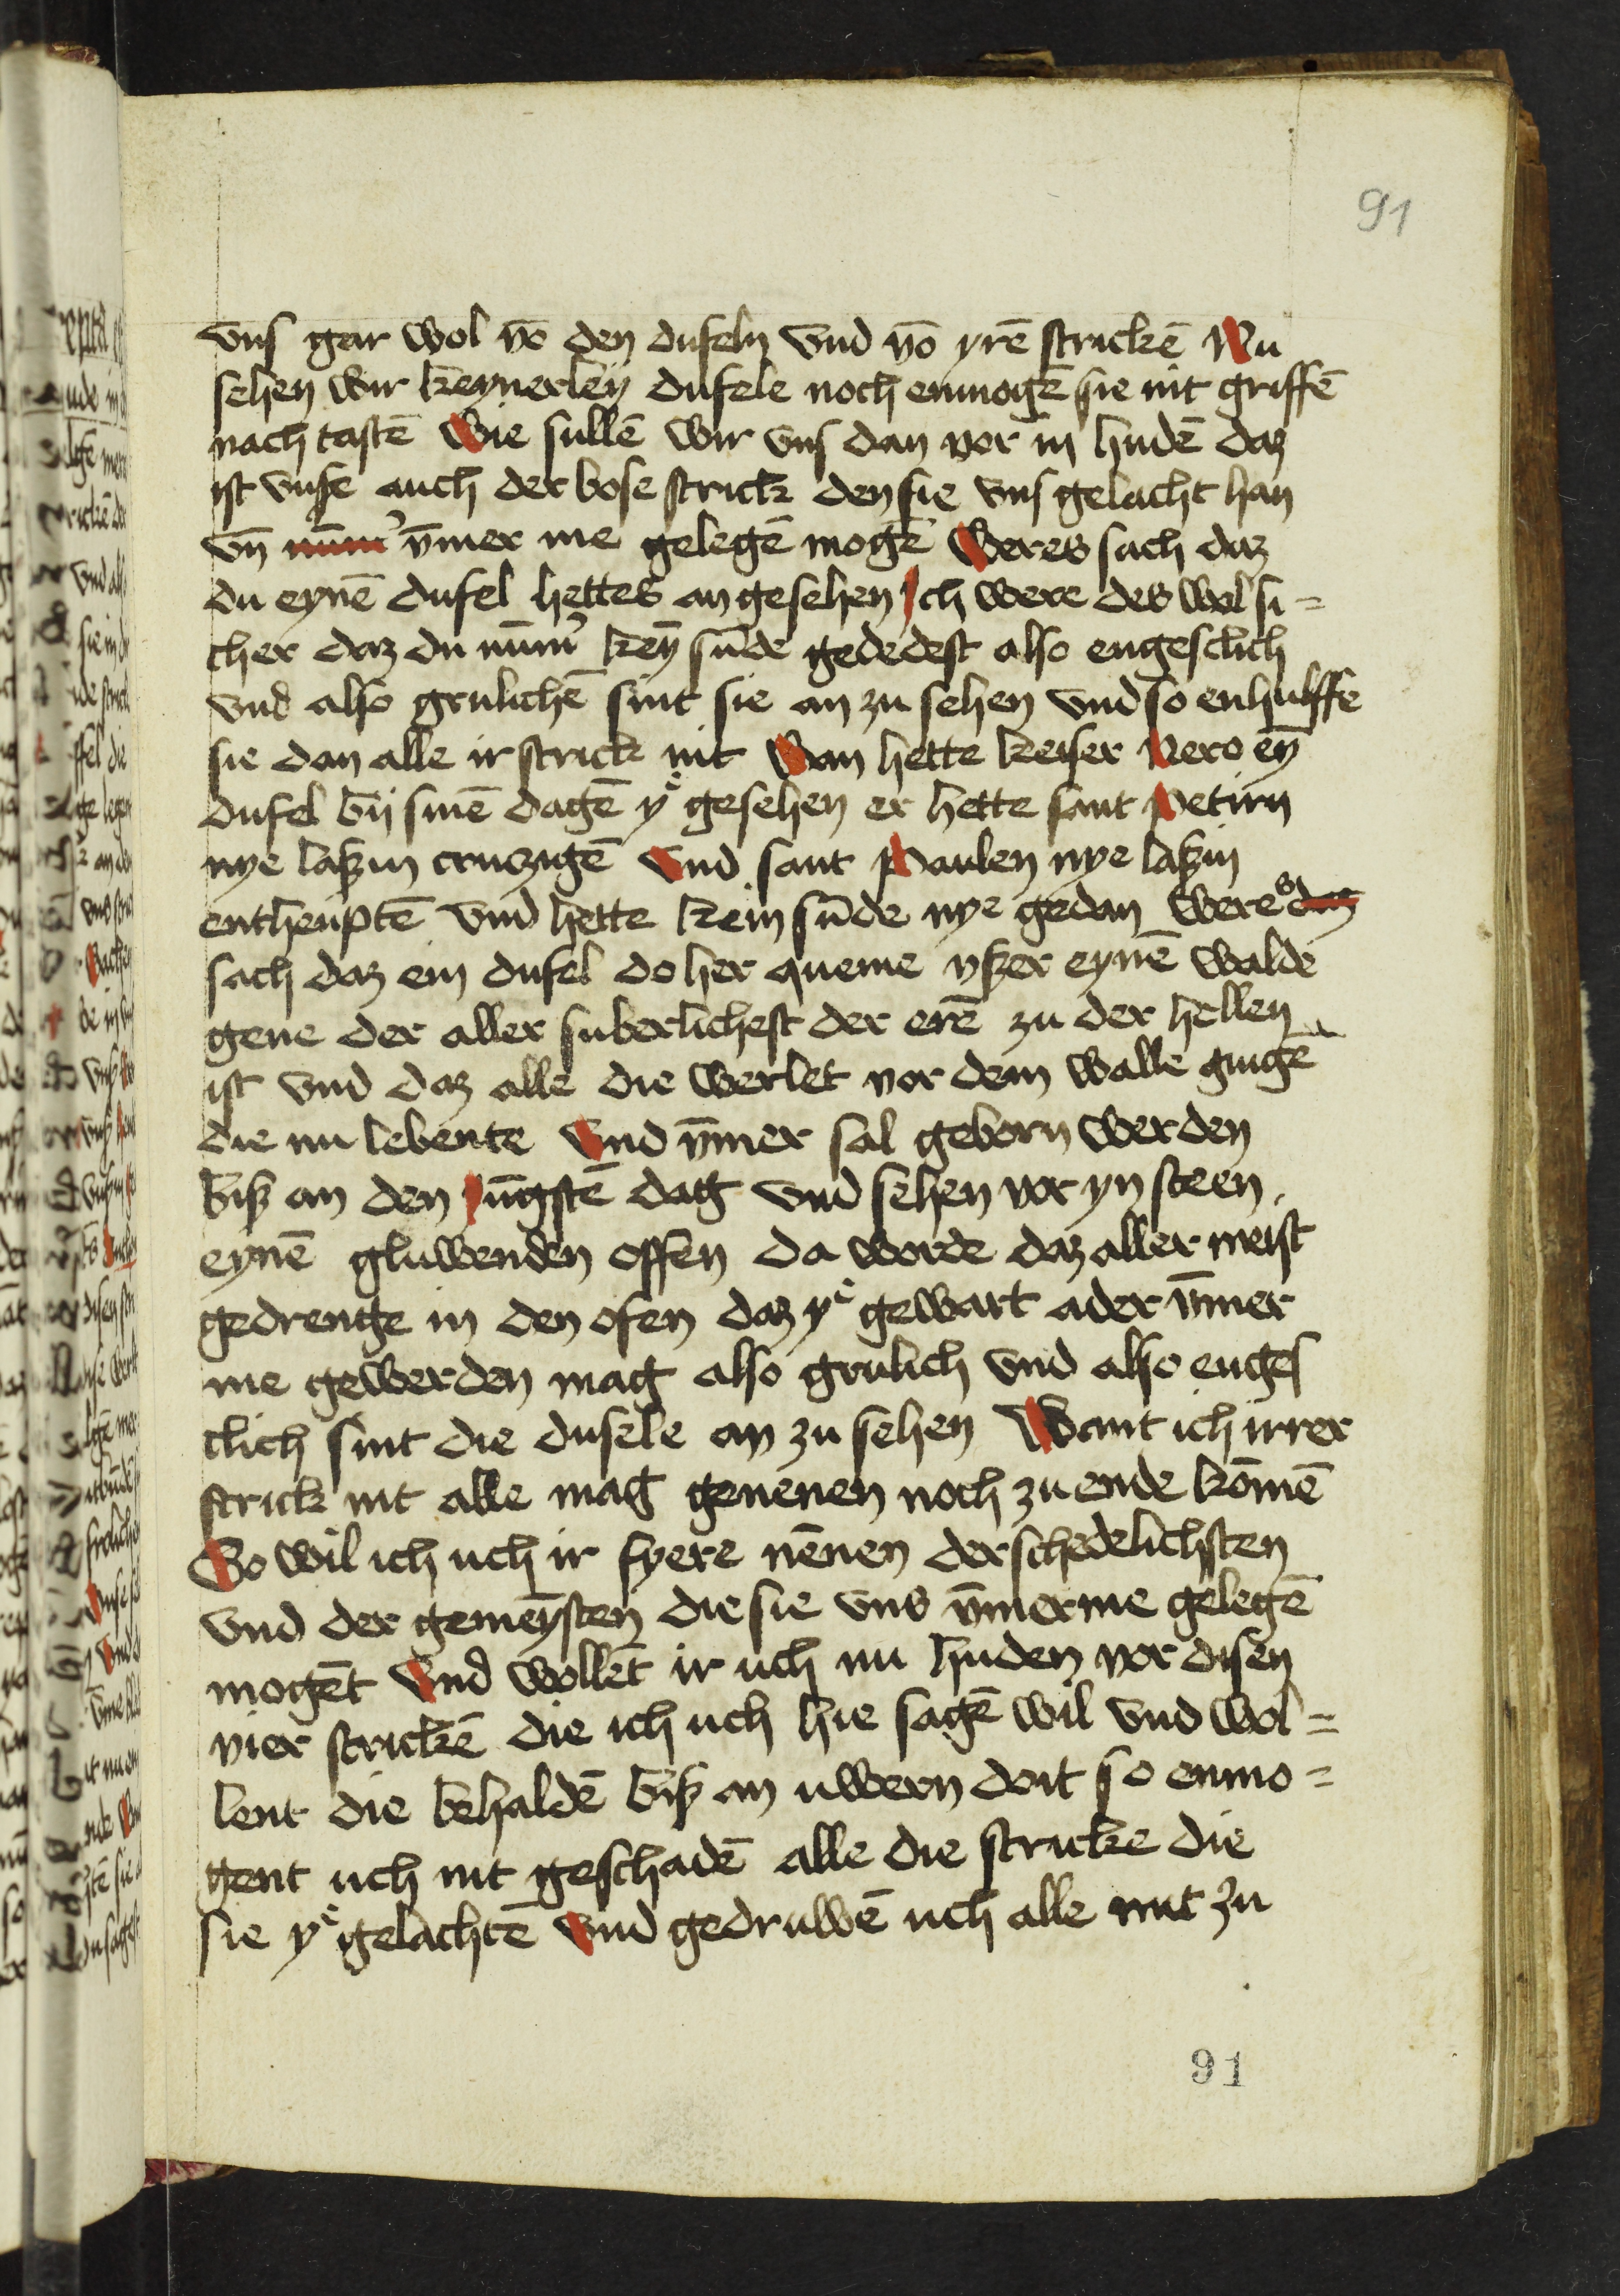 91
vns gar wol vō den dufeln vnd vō yrē strickē Nu
sehen wir keynerley dufele noch enmogē sie nit griffē
nach tastē Wie sullē wir vns dan vor in hudē daz
ist vnse auch der bose strick den sie vns gelacht han
vn̄ nūm̄ ȳmer me gelegē mogē Weres sach daz
du eynē dufel hettes angesehen Ich were des wol si=
cher daz du nūm̉ keȳ sūde gededest also engesclich
vnd also grulichē sint sie an zu sehen vnd so enhulffe
sie dan alle ir strick nit Wan hette keiser Nero eȳ
dufel bij sinē dagē yͤ gesehen er hette sant Petirn
nye laßin cruczigē Vnd sant Paulen nye laßin
entheuptē vnd hette kein sūde nye gedan Weres daz
sach daz ein dufel do her queme vßer eynē walde
gene der aller suberlichest der erē zu der hellen
ist vnd daz alle die werlet vor dem walle gingē
die nu lebente Vnd ȳmer sal geborn werden
biß an den Jūgstē dag vnd sehen vor yn steen
eynē gluwenden offen da worde daz aller meist
gedrenge in den ofen daz yͤ gewart ader ȳmer
me gewerden mag also grulich vnd also enges
clich sint die dufele an zu sehen Want ich irrer
strick nit alle mag genenen noch zu ende kōmē
So wil ich uch ir fyere nēnen der schedelichsten
vnd der gemeȳsten die sie vns ȳmerme gelegē
mogēt Vnd wollēt ir uch nu huden vor disen
vier strickē die ich uch hie sagē wil vnd wol=
lent die behaldē biß an uwern doit so enmo=
gent uch nit geschadē alle die stricke die
sie yͤ gelachtē Vnd gedruwē uch alle mit zu
91